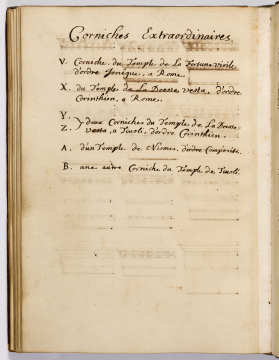 Corniches Extraordinaires
V. Corniche du Temple de La Fortune virile
d'ordre Jonique, a Rome.
X. du Temple de La Deesse vesta, d'ordre
Corinthien, a Rome.
Y.
Z. } deux Corniches du Temple de La Deesse
vesta, a Tivoli, d'ordre Corinthien.
A. d'un Temple de Nismes, d'ordre Composite.
B. une autre Corniche du Temple de Tivoli.